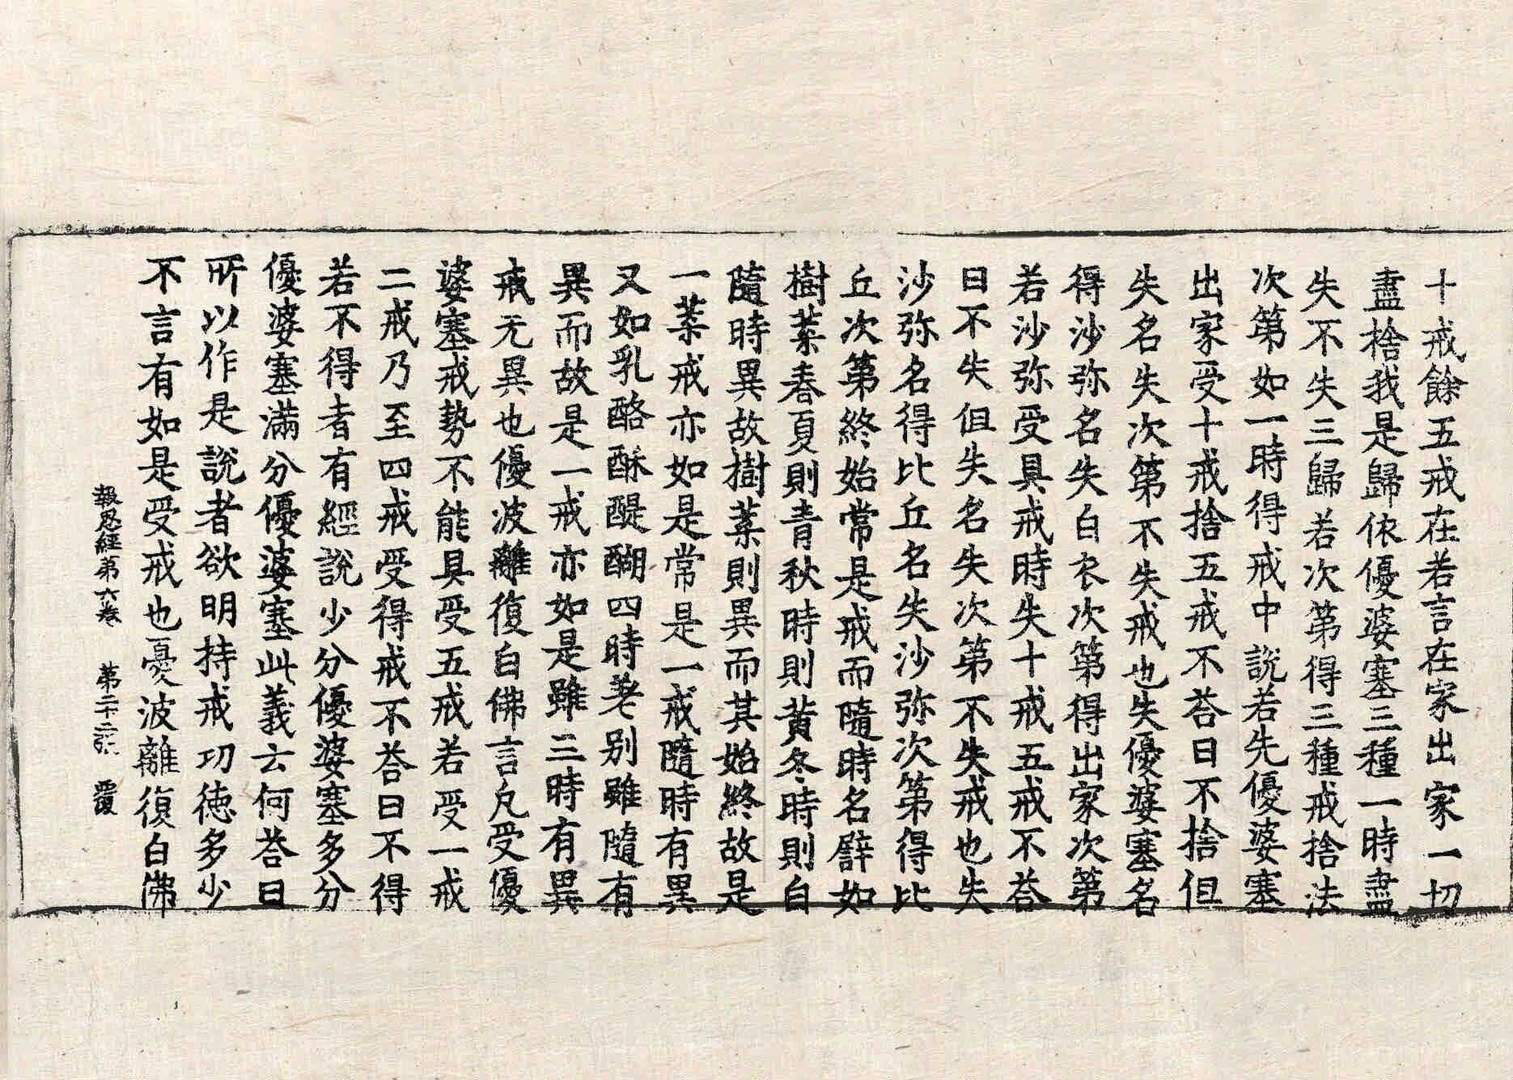 十戒餘五戒在若言在家出家一切
盡捨我是歸依優婆塞三種一時盡
失不失三歸若次第得三種戒捨法
次第如一時得戒中說若先優婆塞
出家受十戒捨五戒不荅曰不捨但
失名失次第不失戒也失優婆塞名
得沙弥名失白衣次第得出家次第
若沙弥受具戒時失十戒五戒不荅
曰不失但失名失次第不失戒也失
沙弥名得比丘名失沙弥次第得比
丘次第終始常是戒而隨時名譬如
樹葉春夏則青秋時則黃冬時則白
隨時異故樹葉則異而其始終故是
一葉戒亦如是常是一戒隨時有異
又如乳酪酥醍醐四時差別雖隨有
異而故是一戒亦如是雖三時有異
戒无異也優波離復白佛言凡受優
婆塞戒勢不能具受五戒若受一戒
二戒乃至四戒受得戒不荅曰不得
若不得者有經說少分優婆塞多分
優婆塞滿分優婆塞此義云何荅曰
所以作是說者欲明持戒功德多少
不言有如是受戒也憂波離復白佛
報恩經第六卷　第二十二張　覆